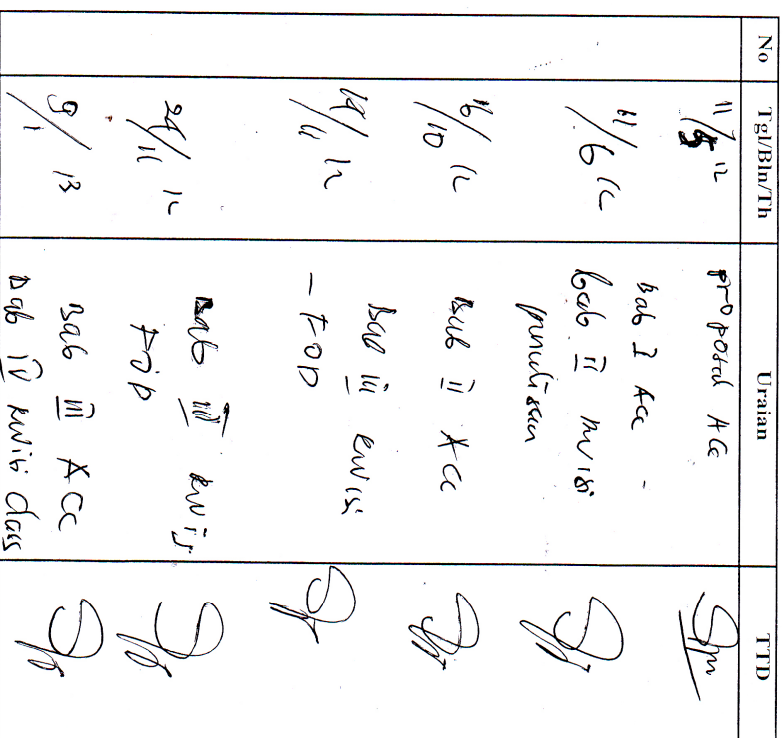 No Tgl/Bln/Th Uraian TTD
11/5 12 proposal Acc
Bab I Acc -
11/6 12 bab II revisi
penulisan
16/10 12 Bab II Acc
19/11 12 Bab III Revisi
- FOD
29/11 12 Bab III Revisi
FOD
9/1 13 Bab III Acc
Bab IV Revisi